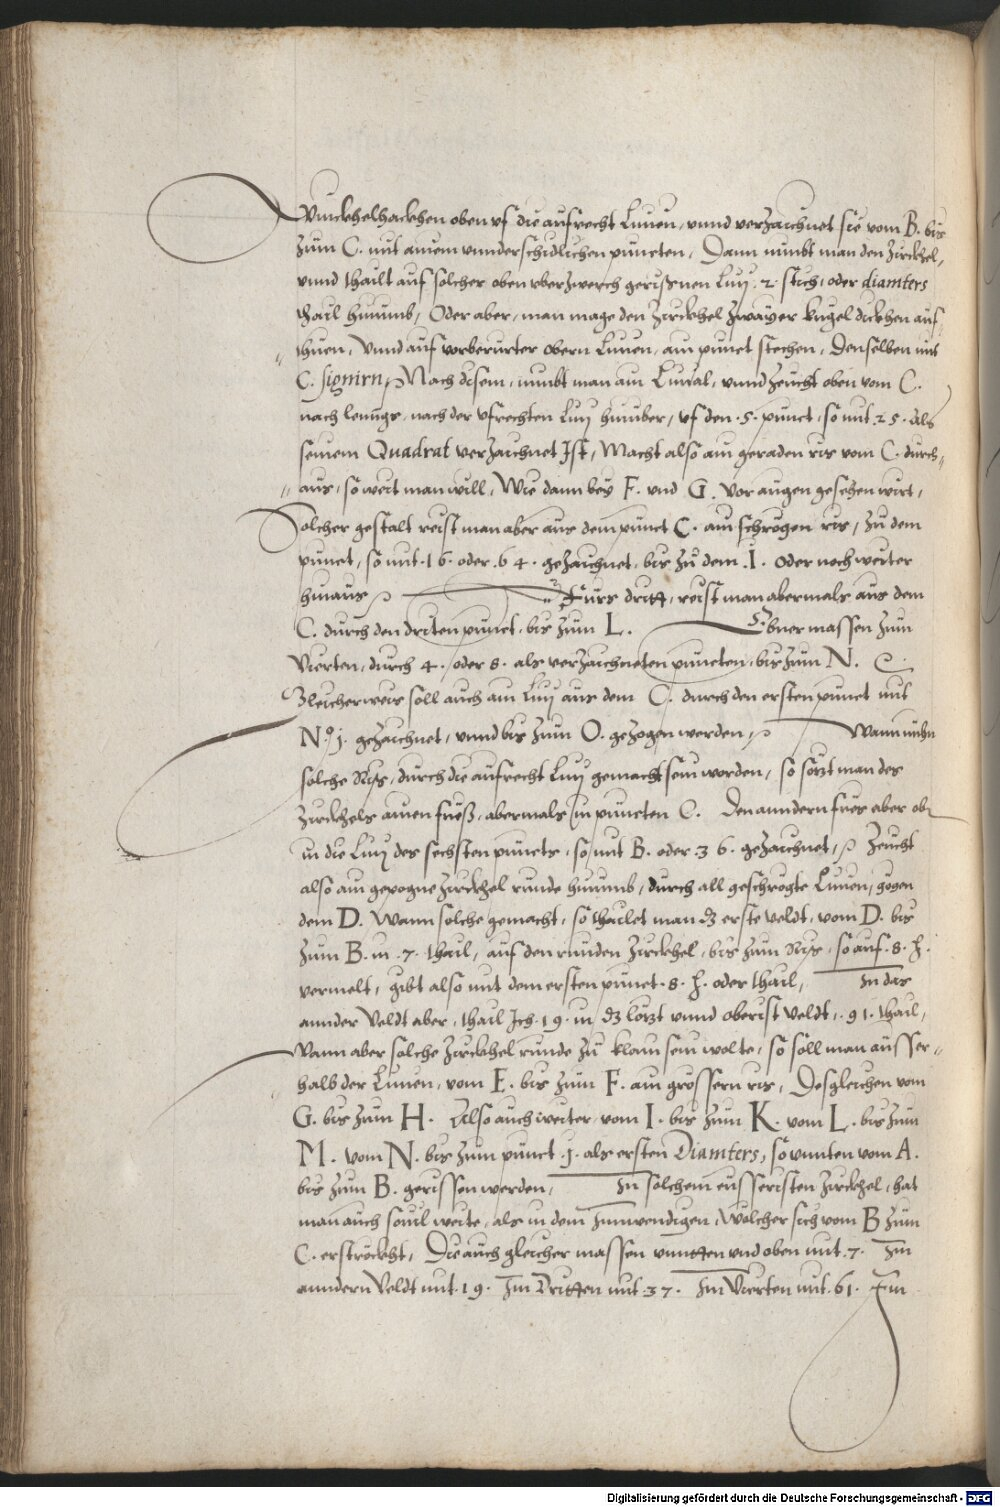 Winckhelhackhen oben vf die aufrecht Linien, vnnd verzaichnet sie vom B. bis
zum C. mit ainem vnnderschidlichen puncten, Dann nimbt man den zirckhel,
vnnd thailt auf solcher oben vberzwerch gerißnen Linj .2. stich, oder diamters
thail hinumb, Oder aber, man mage den Zirckhel zwayer kugel dickhen auf-
thuen, Vnnd auf vorberurter obern Linien, ain punct stechen, Denselben mit
C. signirn, Nach disem, nimbt man ain Linial, vnnd zeucht oben vom C.
nach lenngs, nach der vfrechten Linj hinüber, vf den .5. punct, so mit .25. als
seinem Quadrat verzaichnet Ist, Macht also ain geraden ris vom C. durch-
aus, so weit man will, Wie dann bey F. vnd G. vor augen gesehen wirt,
Solcher gestalt reist man aber aus dem punct C. ain schregen ris, zu dem
punct, so mit .16. oder .64. gezaichnet, bis zu dem .I. oder noch weiter
hinaus Fürs dritt, reist man abermals aus dem
C. durch den driten punct, bis zum L. Ebner massen zum
Vierten, durch 4. oder 8. als verzaichneten puncten, bis zum N.
Gleicherweis soll auch ain Linj aus dem C. durch den ersten punct mit
N.º 1. gezaichnet, vnnd bis zum O. gezogen werden, Wann nuhn
solche Riß, durch die aufrecht Linj gemacht sein worden, so sötzt man des
zirckhels ainen fueß, abermals in puncten C. Den anndern fues aber oben
in die Linj des sechsten puncts, so mit B. oder 36. gezaichnet, Zeucht
also ain gezogne zirckhel runde hinumb, durch all geschregte Linien, gegen
dem D. Wann solche gemacht, so thailet man dz erste veldt, vom D. bis
zum B. in .7. thail, auf den runden zirckhel, bis zum Riß, so auf .8. h.
vermelt, gibt also mit dem ersten punct .8. h. oder thail, In das
annder Veldt aber, thail Ich .19. in dz lötzt vnnd oberist Veldt, .91. thail,
Wann aber solche zirckhel runde zu klain sein wolte, so soll man ausser-
halb der Linien, vom E. bis zum F. ain grössern ris, Desgleichen vom
G. bis zum H. Also auch weiter, vom I. bis zum K. vom L. bis zum
M. vom N. bis zum punct .1. als ersten Diamters, so vnnten vom A.
bis zum B. gerissen werden, In solchem eusseristen zirckhel, hat
man auch souil weite, als in dem Innwendigen, Welcher sich vom B zum
C. erströckht, Die auch gleicher massen vnnten vnd oben mit .7. Im
anndern Veldt mit .19. Im Dritten mit .37. Im Vierten mit .61. Im
Digitalisierung gefördert durch die Deutsche Forschungsgemeinschaft - DFG